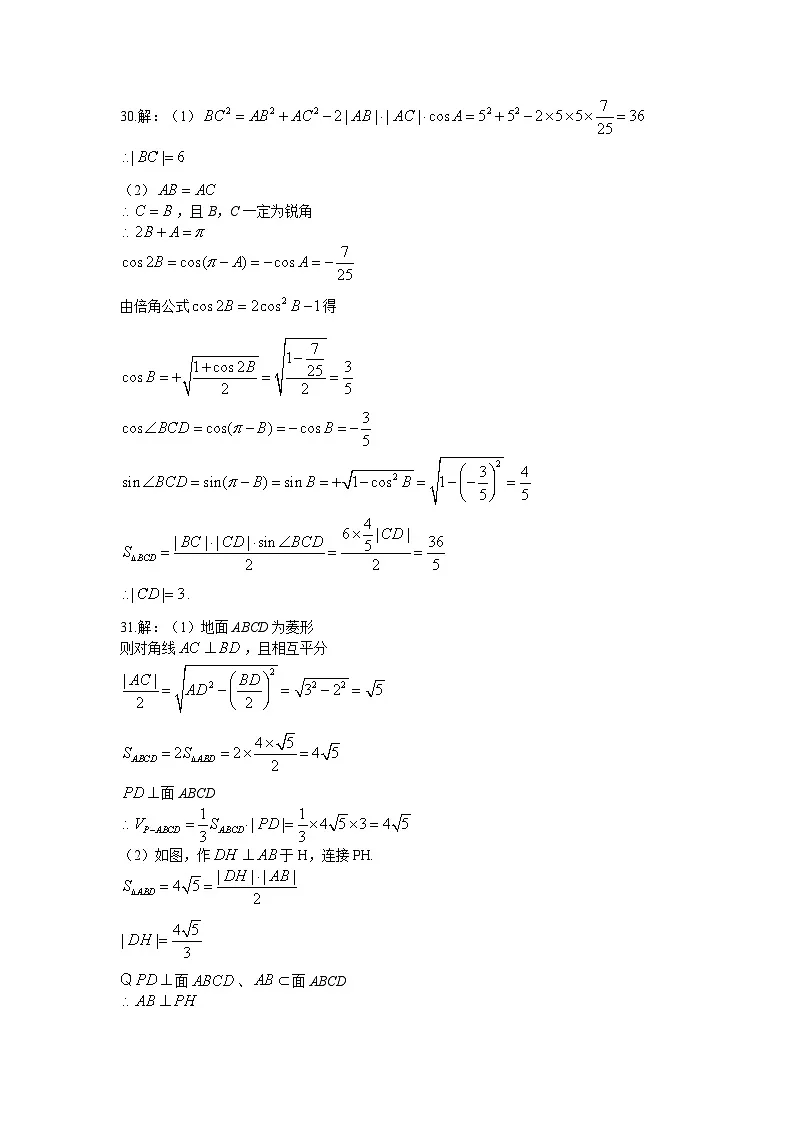 30.解：（1）BC² = AB² + AC² − 2|AB|·|AC|·cos A = 5² + 5² − 2×5×5×7/25 = 36
∴|BC|= 6
（2）AB = AC
∴ C = B，且 B，C 一定为锐角
∴ 2B + A = π
cos 2B = cos(π − A) = −cos A = −7/25
由倍角公式 cos 2B = 2cos² B − 1 得
cos B = +√((1+cos 2B)/2) = √((1−7/25)/2) = 3/5
cos∠BCD = cos(π − B) = −cos B = −3/5
sin∠BCD = sin(π − B) = sin B = +√(1−cos² B) = √(1−(−3/5)²) = 4/5
S△BCD = (|BC|·|CD|·sin∠BCD)/2 = (6×4/5|CD|)/2 = 36/5
∴|CD|= 3.
31.解：（1）地面 ABCD 为菱形
则对角线 AC ⊥ BD，且相互平分
|AC|/2 = √(AD² − (BD/2)²) = √(3² − 2²) = √5
S_ABCD = 2S△ABD = 2×(4×√5)/2 = 4√5
PD ⊥面 ABCD
∴ V_P−ABCD = 1/3 S_ABCD·|PD|= 1/3×4√5×3 = 4√5
（2）如图，作 DH ⊥ AB 于 H，连接 PH.
S△ABD = 4√5 = (|DH|·|AB|)/2
|DH|= 4√5/3
Q PD ⊥面 ABCD、AB ⊂面 ABCD
∴ AB ⊥ PH